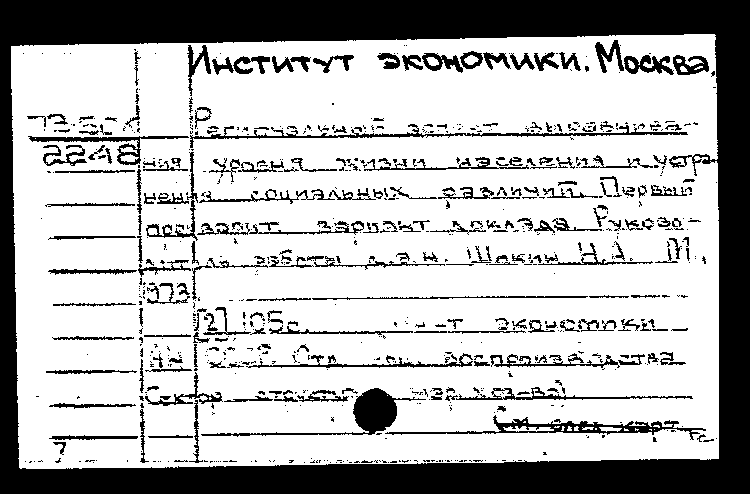 Институт экономики. Москва.
Региональный аспект выравнива-
2248 ния уровня жизни населения и устра-
нения социальных различий. Первый
предварит. вариант доклада. Руково-
дитель работы д.э.н. Шокин Н.А. М.,
1973.
[2] 105с. ин-т экономики
АН СССР. Отд. воспроизводства
Сектор структур нар. хоз-ва)
См. след. карт.
7